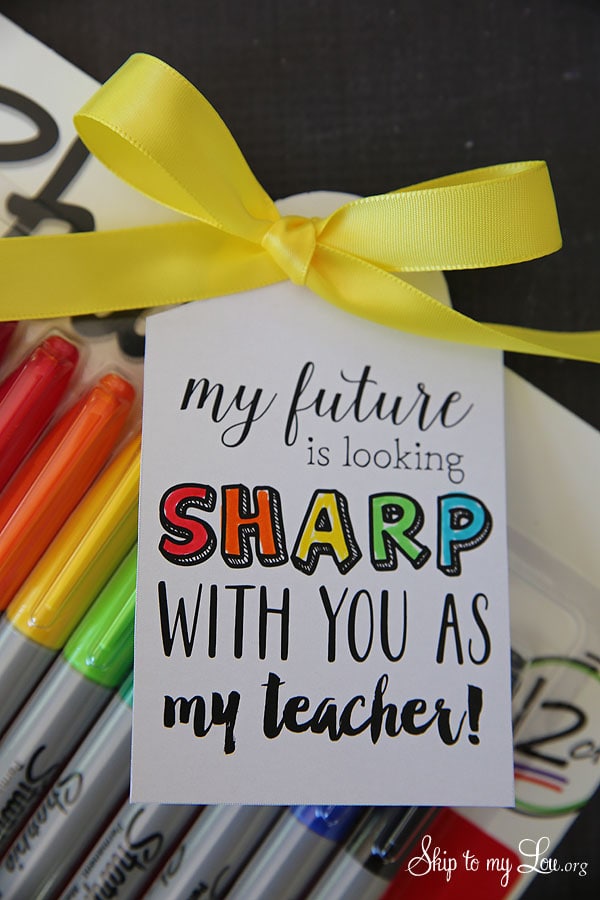 my future
is looking
SHARP
WITH YOU AS
my teacher!
12 c
Sharpie
Sharpie
Sharpie
Skip to my Lou.org